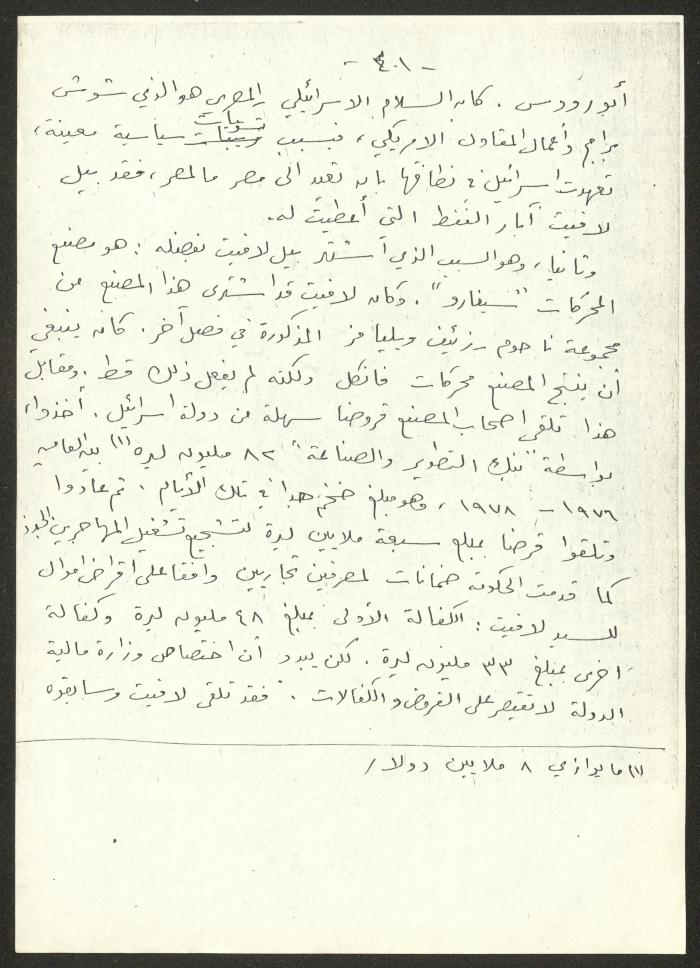 - ٤٠١ -
أبو رودس . كان السلام الاسرائيلي المصري هو الذي شوش
برامج وأعمال المقاول الامريكي ، فبسبب تسويات سياسية معينة ،
تعهدت اسرائيل في نطاقها بان تعيد الى مصر ما لمصر ، فقد بيل
لافيت آبار النفط التي أعطيت له .
وثانيا ، وهو السبب الذي اشتهر بيل لافيت بفضله : هو مصنع
المحركات "سيفارو" . وكان لافيت قد اشترى هذا المصنع من
مجموعة ناحوم - رزئيف ويليامز المذكورة في فصل آخر . كان ينبغي
أن ينتج المصنع محركات فانكل ولكنه لم يفعل ذلك قط . ومقابل
هذا تلقى اصحاب المصنع قروضا سهلة من دولة اسرائيل . أخذوا ،
بواسطة "بنك التطوير والصناعة" ٨٢ مليون ليرة (١) بين العامين
١٩٧٦ - ١٩٧٨ ، وهو مبلغ ضخم جدا في تلك الأيام . ثم عادوا
وتلقوا قرضا بمبلغ سبعة ملايين ليرة لتشجيع تشغيل المهاجرين الجدد
كما قدمت الحكومة ضمانات لمصرفين تجاريين وافقا على اقراض اموال
للسيد لافيت : الكفالة الأولى بمبلغ ٤٨ مليون ليرة وكفالة
اخرى بمبلغ ٣٣ مليون ليرة . لكن يبدو أن اختصاص وزارة مالية
الدولة لا تقتصر على القروض والكفالات . فقد تلقى لافيت وسابقوه
(١) ما يوازي ٨ ملايين دولار